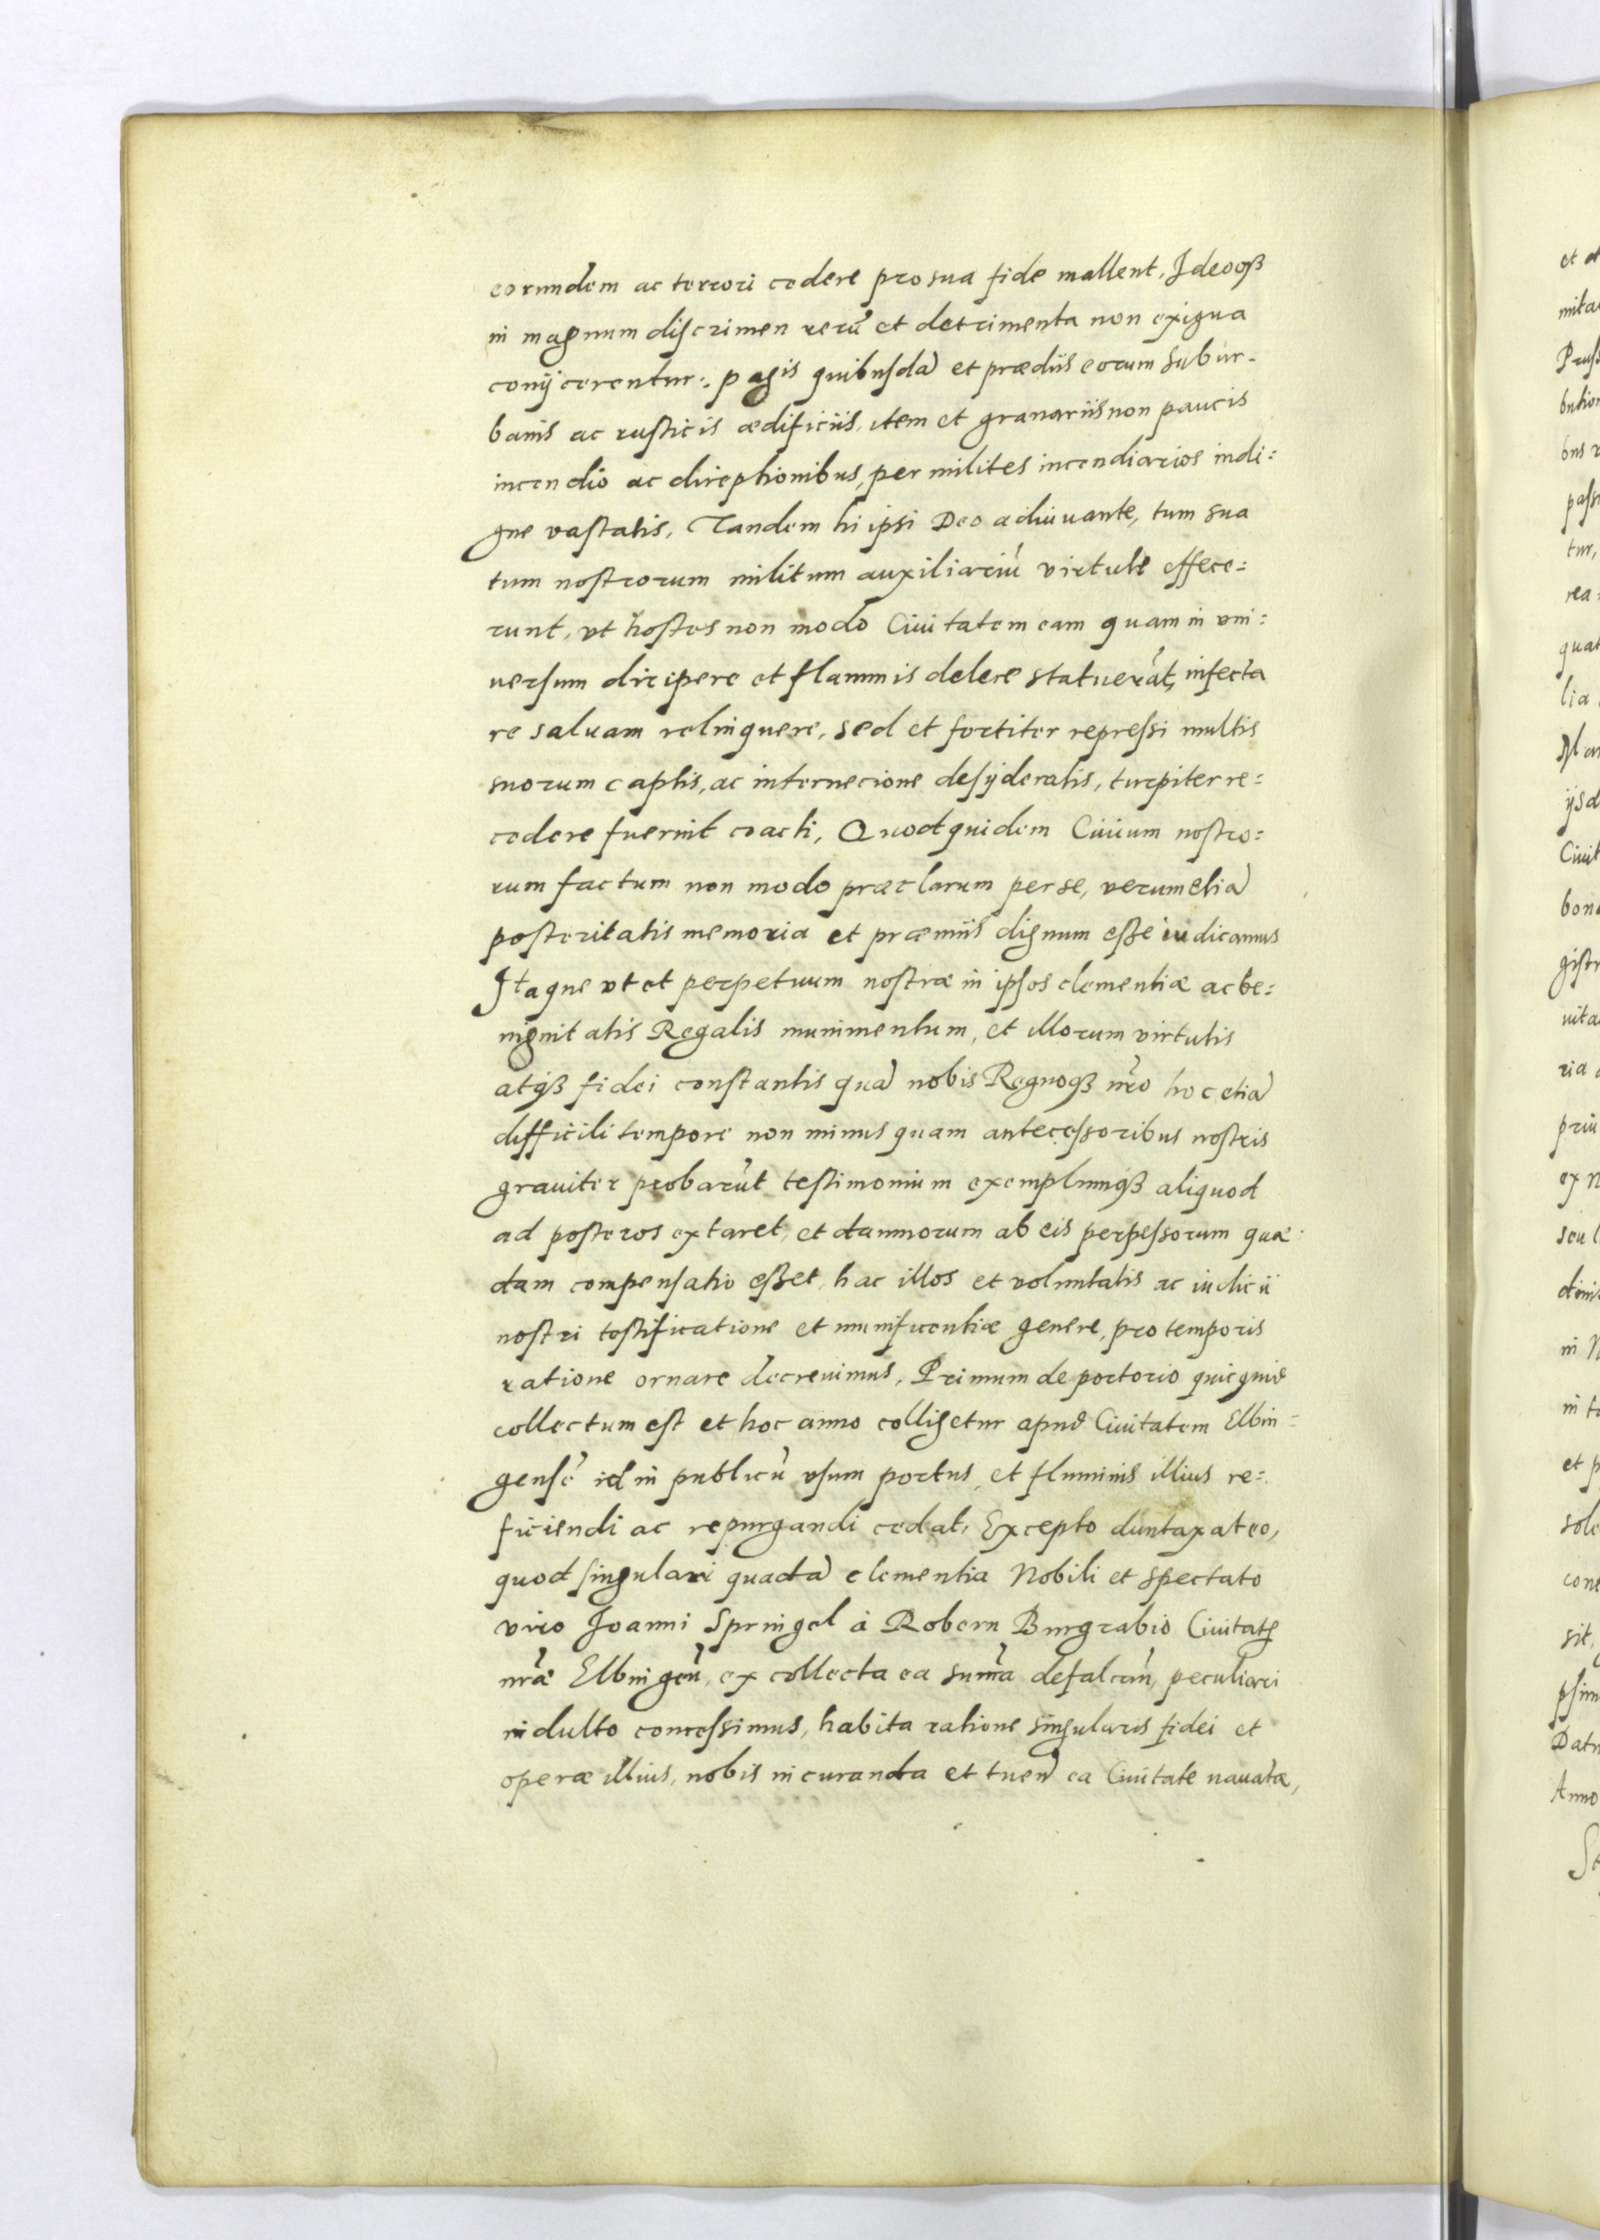 eorundem ac terrori cedere pro sua fide mallent, Ideoqȝ
in magnum discrimen rerū et detrimenta non exigua
conijcerentur: pagis quibusdā et prædiis eorum subur-
banis ac rusticis ædificiis, item et granariis non paucis
incendio ac direptionibus, per milites incendiarios indi=
gne vastatis, Tandem hi ipsi Deo adiuuante, tum sua
tum nostrorum militum auxiliariū virtute effece=
runt, vt hostes non modo Ciuitatem eam quam in vni=
uersum diripere et flammis delere statuerāt, infecta
re saluam relinquere, sed et fortiter repressi multis
suorum captis, ac internecione desyderatis, turpiter re=
cedere fuerint coacti, Quod quidem Ciuium nostro=
rum factum non modo præclarum per se, verum etiā
posteritatis memoria et præmiis dignum esse iudicamus
Itaque vt et perpetuum nostræ in ipsos clementiæ ac be=
nignitatis Regalis munimentum, et illorum virtutis
atqȝ fidei constantis quā nobis Regnoqȝ nr̄o hoc etiā
difficili tempore non minus quam antecessoribus nostris
grauiter probarūt testimonium exemplumqȝ aliquod
ad posteros extaret, et damnorum ab eis perpessorum quæ
dam compensatio esset, hac illos et voluntatis ac iudicii
nostri testificatione et munificentiæ genere, pro temporis
ratione ornare decreuimus, Primum de portorio quicquid
collectum est et hoc anno colligetur apud Ciuitatem Elbin=
gensē id in publicū vsum portus, et fluminis illius re=
ficiendi ac repurgandi cedat, Excepto duntaxat eo,
quod singulari quadā clementia Nobili et spectato
viro Joanni Springel à Robern Burgrabio Ciuitatis
nr̄æ Elbingen̄, ex collecta ea sum̄a defalcan̄, peculiari
indulto concessimus, habita ratione singularis fidei et
operæ illius, nobis in curanda et tuend̄ ea Ciuitate nauatæ,